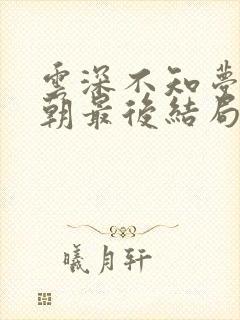 雲深不知夢
朝最後結局
曦月轩